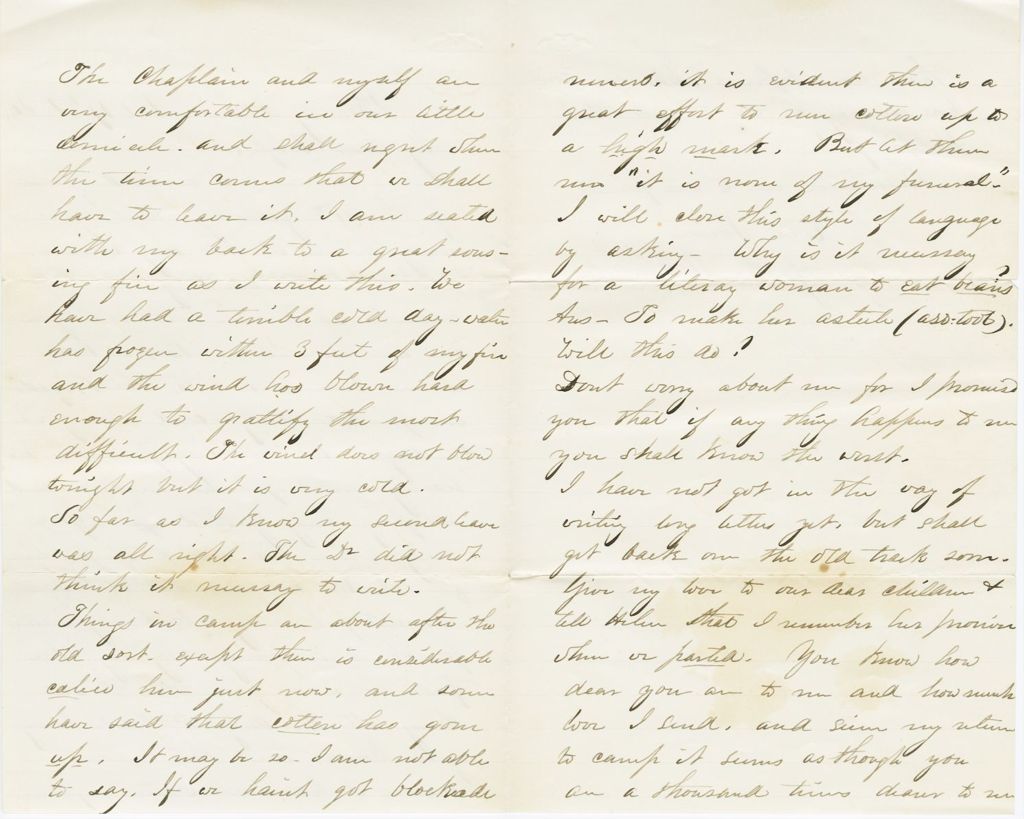 The Chaplain and myself are
very comfortable in our little
domicile. and shall regret when
the time comes that we shall
have to leave it. I am seated
with my back to a great rous-
ing fire as I write this. We
have had a terrible cold day - water
has frozen within 3 feet of my fire
and the wind has blown hard
enough to gratify the most
difficult. The wind does not blow
tonight but it is very cold.
So far as I know my second leave
was all right. The Dr did not
think it necessary to write.
Things in camp are about after the
old sort. except there is considerable
calico here just now, and some
have said that cotton has gone
up. It may be so - I am not able
to say. If we haint got blockade
runners. it is evident there is a
great effort to run cotton up to
a high mark. But let them
run "it is none of my funeral."
I will close this style of language
by asking - Why is it necessary
for a literay woman to eat beans?
Ans - To make her astute (ass-toot).
Will this do?
Dont worry about me for I promised
you that if any thing happens to me
you shall know the worst.
I have not got in the way of
writing long letters yet, but shall
get back on the old track soon.
Give my love to our dear children &
tell Helen that I remember her promise
when we parted. You know how
dear you are to me and how much
love I send. and since my return
to camp it seems as though you
are a thousand times dearer to me